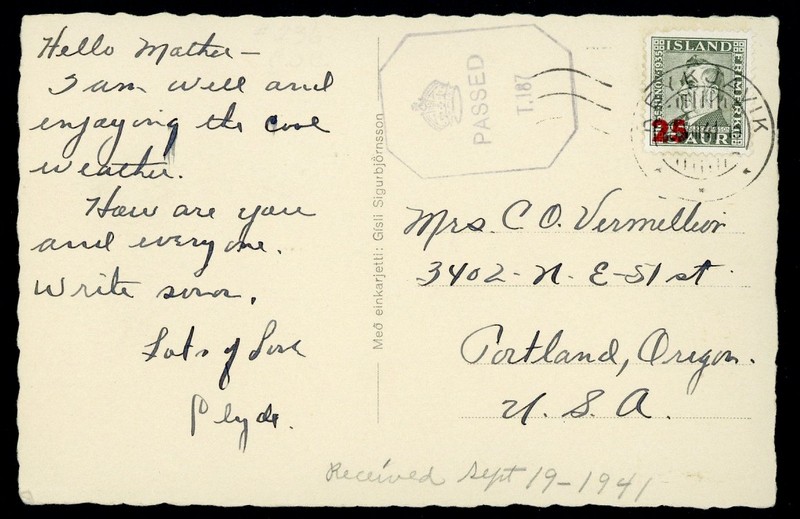 Hello Mother —
I am well and
enjoying the cool
weather.
How are you
and everyone.
Write soon,
Lots of Love
Clyde.
Með einkarjetti: Gísli Sigurbjörnsson
PASSED
T.187
ISLAND
FRIMERKI
25
AURAR
Mrs. C O. Vermellion
3402 - N. E - 51 st.
Portland, Oregon.
U. S. A.
Received Sept 19 - 1941